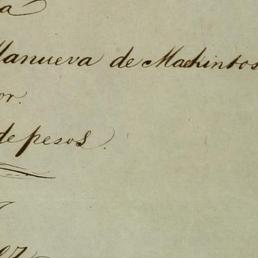 a
llanueva de Machintos
or.
de pesos.
ez